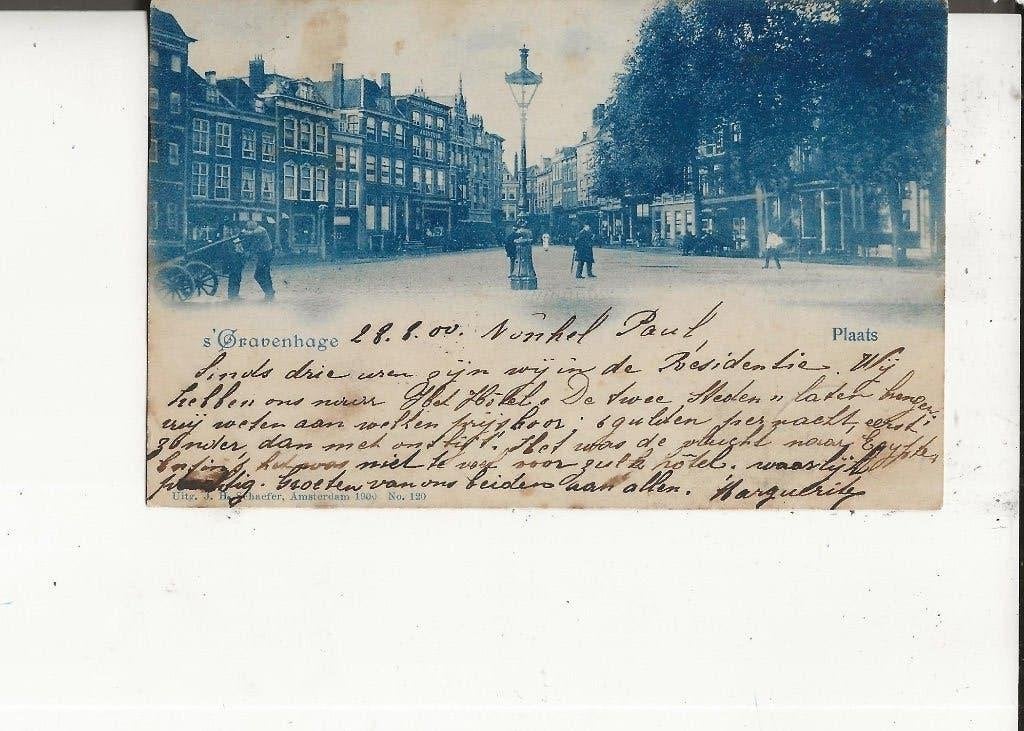 s'Gravenhage 28.8.00. Nonkel Paul,
Plaats
Sinds drie uren zijn wij in de Residentie. Wij
hebben ons naar Het Hôtel „De twee Steden"
wij weten aan welken prijs hoor; 6 gulden per nacht, eerst
zonder, dan met ontbijt. Het was de vlucht naar Egypte,
het was niet te voor zulk hôtel. waarlijk
prachtig. Groeten van ons beiden aan allen. Marguerite
Uitg. J. H. Schaefer, Amsterdam 1900 No. 120